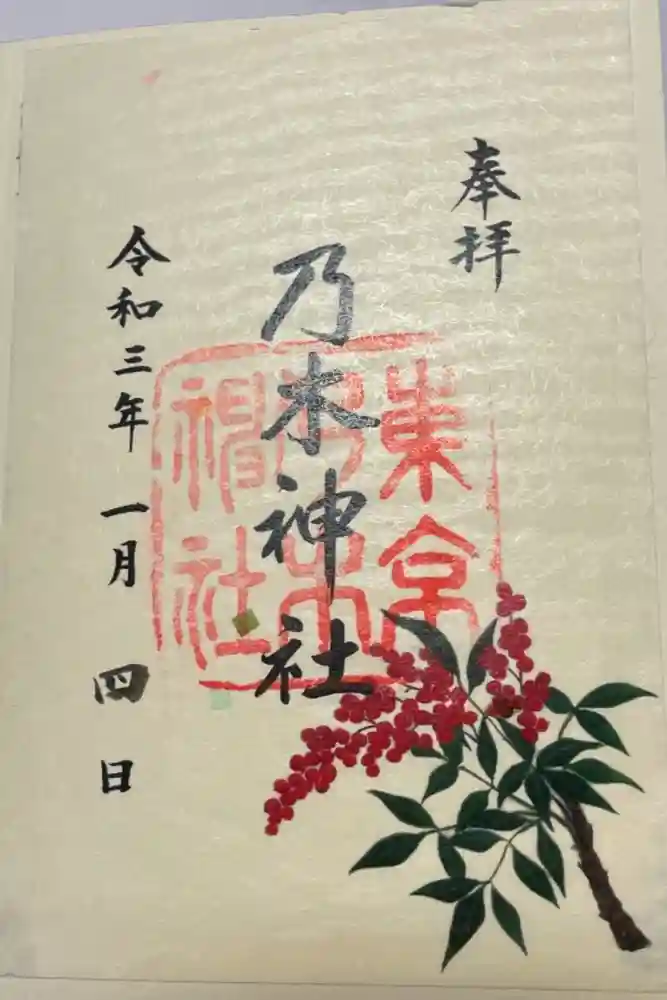 奉拝
乃木神社
東京
乃木
神社
令和三年一月四日